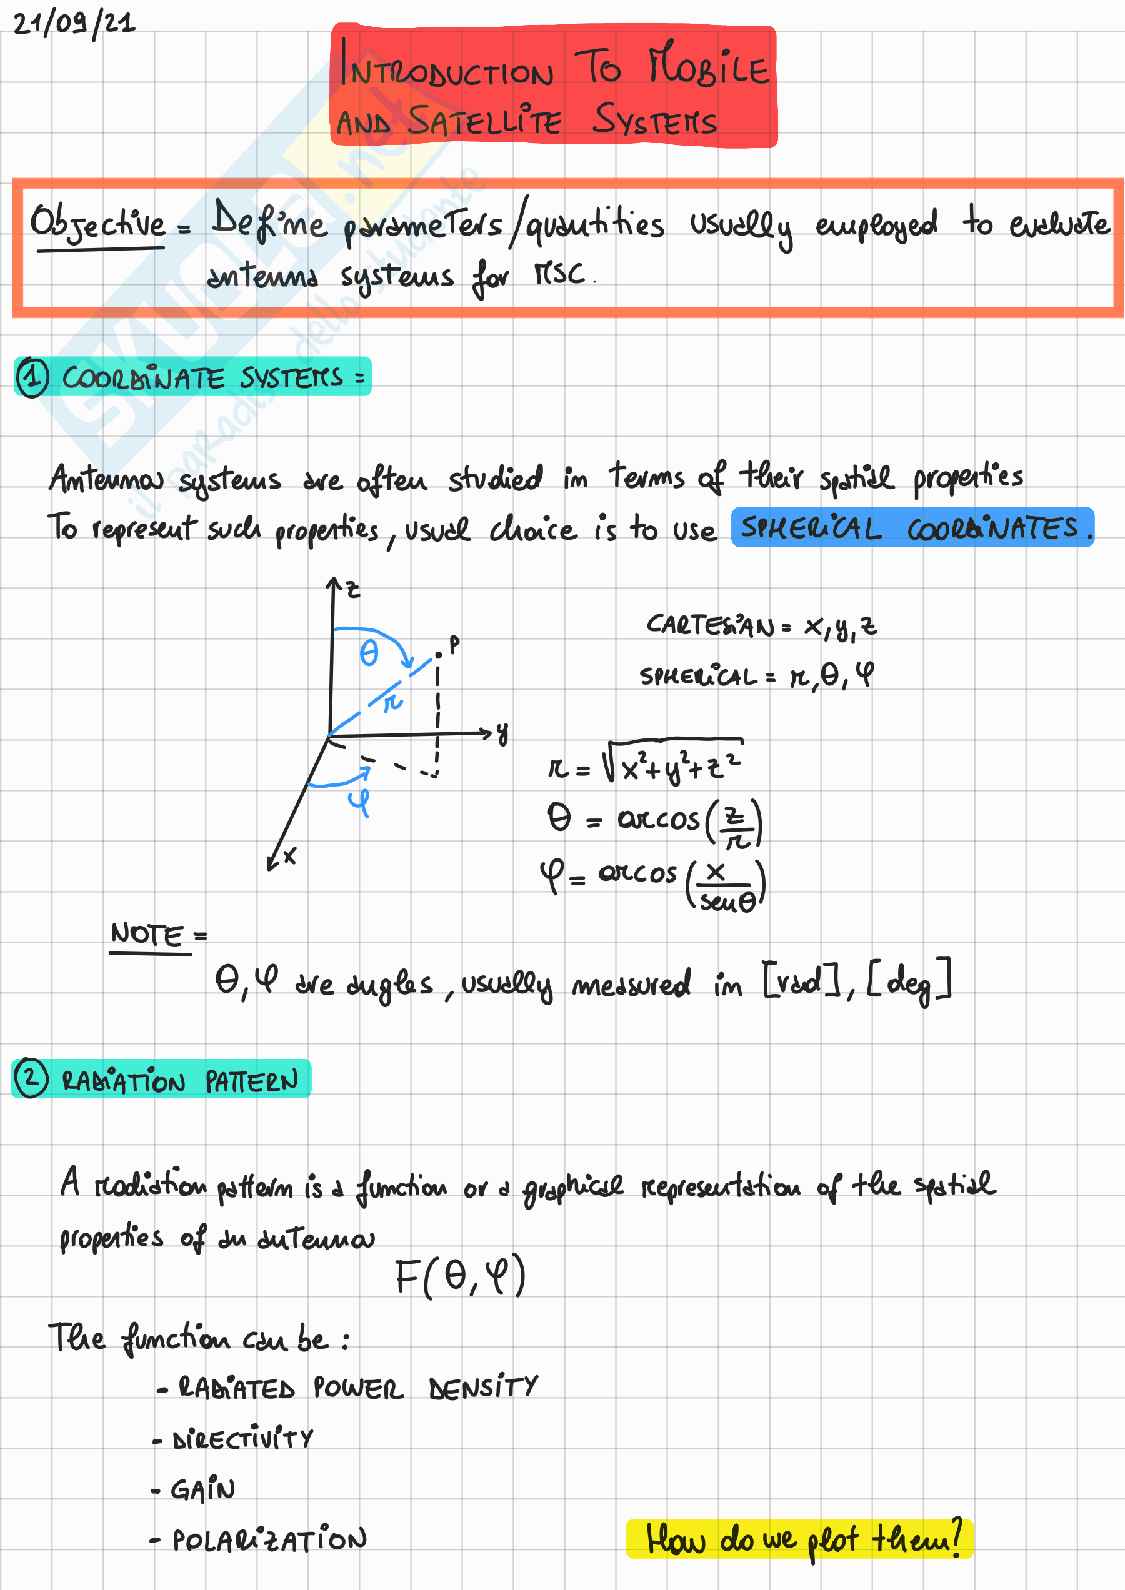 21/09/21
INTRODUCTION TO MOBILE
AND SATELLITE SYSTEMS
Objective = Define parameters/quantities usually employed to evaluate
antenna systems for MSC.
SKUOLA.net
il paradiso dello studente
1 COORDINATE SYSTEMS =
Antenna systems are often studied in terms of their spatial properties
To represent such properties, usual choice is to use SPHERICAL COORDINATES.
z
θ
P
r
y
φ
x
CARTESIAN = x, y, z
SPHERICAL = r, θ, φ
r = √x²+y²+z²
θ = arcos(z/r)
φ = arcos(x/senθ)
NOTE =
θ, φ are angles, usually measured in [rad], [deg]
2 RADIATION PATTERN
A radiation pattern is a function or a graphical representation of the spatial
properties of an antenna
F(θ, φ)
The function can be :
- RADIATED POWER DENSITY
- DIRECTIVITY
- GAIN
- POLARIZATION
How do we plot them?